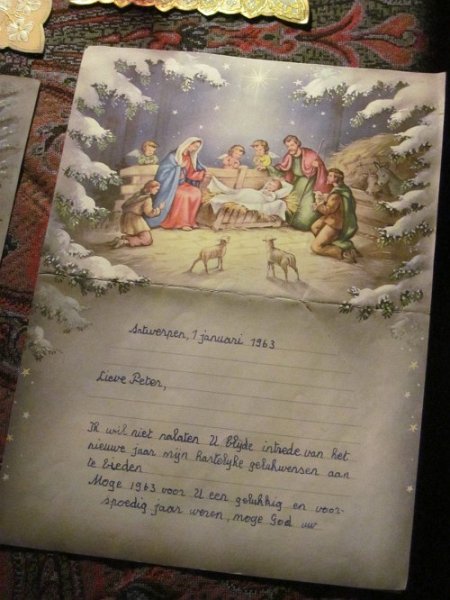 Antwerpen, 1 januari 1963
Lieve Peter,
Ik wil niet nalaten U blijde intrede van het
nieuwe jaar mijn hartelijke gelukwensen aan
te bieden
Moge 1963 voor U een gelukkig en voor-
spoedig jaar wezen, moge God uw